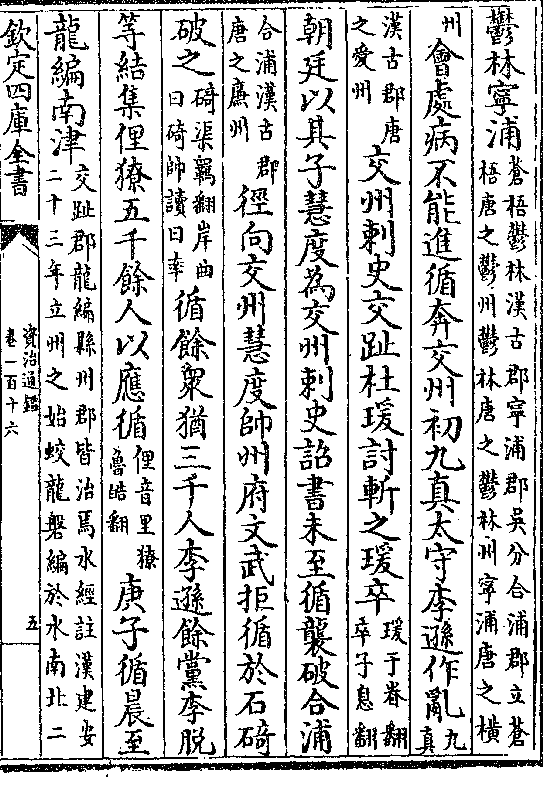 鬱林寧浦蒼梧鬱林漢古郡寧浦郡吳分合浦郡立蒼梧唐之鬱州鬱林唐之鬱林州寧浦唐之橫
州會處病不能進循奔交州初九真太守李遜作亂九真
漢古郡唐之愛州交州刺史交趾杜瑗討斬之瑗卒瑗于眷翻卒子息翻
朝廷以其子慧度為交州刺史詔書未至循襲破合浦
合浦漢古郡唐之廉州徑向交州慧度帥州府文武拒循於石碕
破之碕渠羈翻岸曲曰碕帥讀曰率循餘衆猶三千人李遜餘黨李脫
等結集俚獠五千餘人以應循俚音里獠魯皓翻庚子循晨至
龍編南津交趾郡龍編縣州郡皆治焉水經註漢建安二十三年立州之始蛟龍磐編於水南北二
欽定四庫全書
資治通鑑
卷一百十六
五